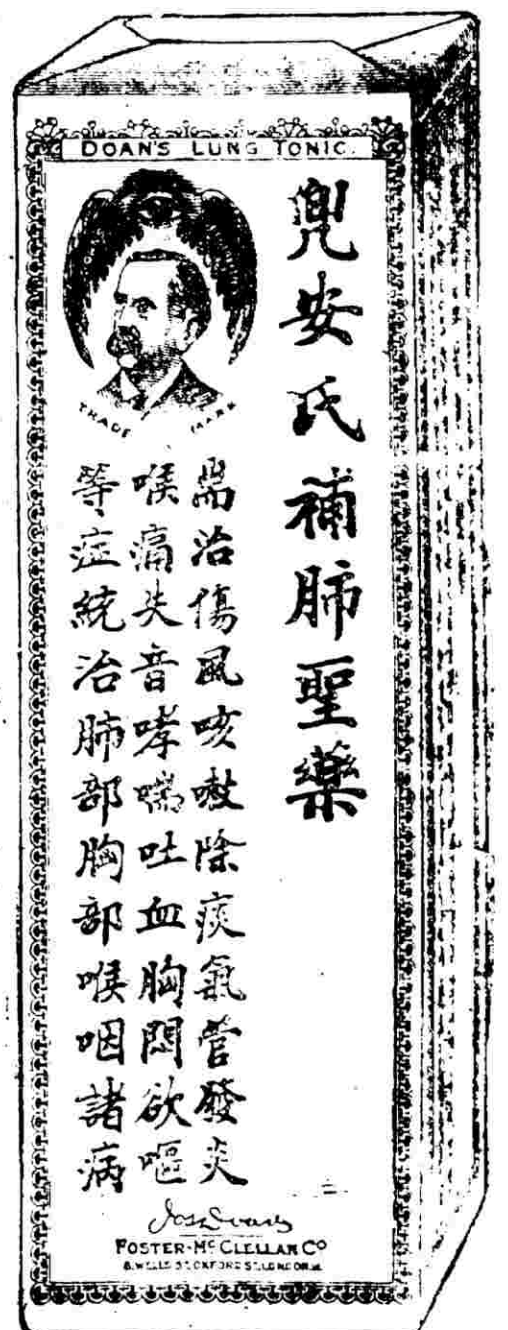 DOAN'S LUNG TONIC.
兜安氏補肺聖藥
TRADE MARK
耑治傷風咳嗽除痰氣管發炎
喉痛失音哮喘吐血胸悶欲嘔
等症統治肺部胸部喉咽諸病
FOSTER-McCLELLAN Co
8, WELLS St. OXFORD ST. LONDON.W.